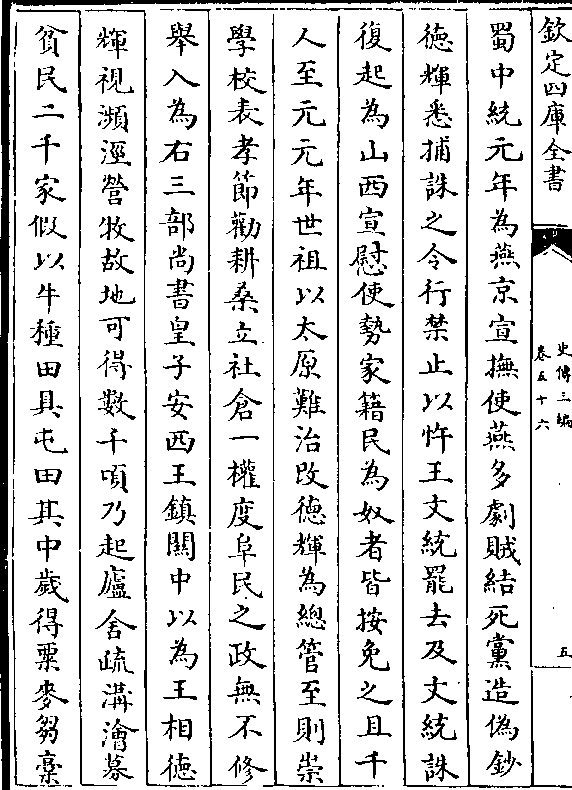 欽定四庫全書
史傳三編
卷五十六
五
蜀中統元年為燕京宣撫使燕多劇賊結死黨造偽鈔
徳輝悉捕誅之令行禁止以忤王文統罷去及文統誅
復起為山西宣慰使勢家籍民為奴者皆按免之且千
人至元元年世祖以太原難治改徳輝為總管至則崇
學校表孝節勸耕桑立社倉一權度阜民之政無不修
舉入為右三部尚書皇子安西王鎮闗中以為王相徳
輝視瀕涇營牧故地可得數千頃乃起廬舍疏溝澮募
貧民二千家假以牛種田具屯田其中歲得粟麥芻藁